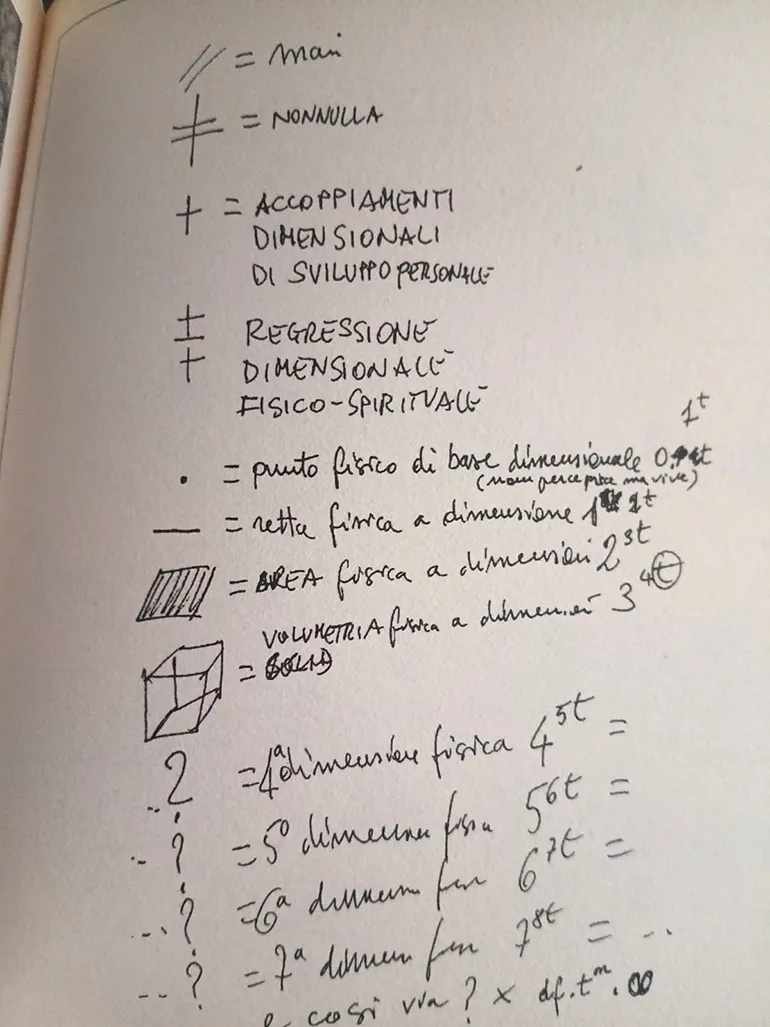 // = mai
‡ = NONNULLA
+ = ACCOPPIAMENTI
DIMENSIONALI
DI SVILUPPO PERSONALE
± REGRESSIONE
+ DIMENSIONALE
FISICO-SPIRITUALE
1^t
. = punto fisico di base dimensionale 0.
(non percepite ma vive)
— = retta fisica a dimensione 1 2^t
= AREA fisica a dimensioni 2^3t
VOLUMETRIA fisica a dimensioni 3^4t
= SOLID
..? = 4ª dimensione fisica 4^5t =
..? = 5º dimensione fisica 5^6t =
...? = 6ª dimension fis 6^7t =
..? = 7ª dimension fis 7^8t = ...
e così via ? x df.t^m.∞